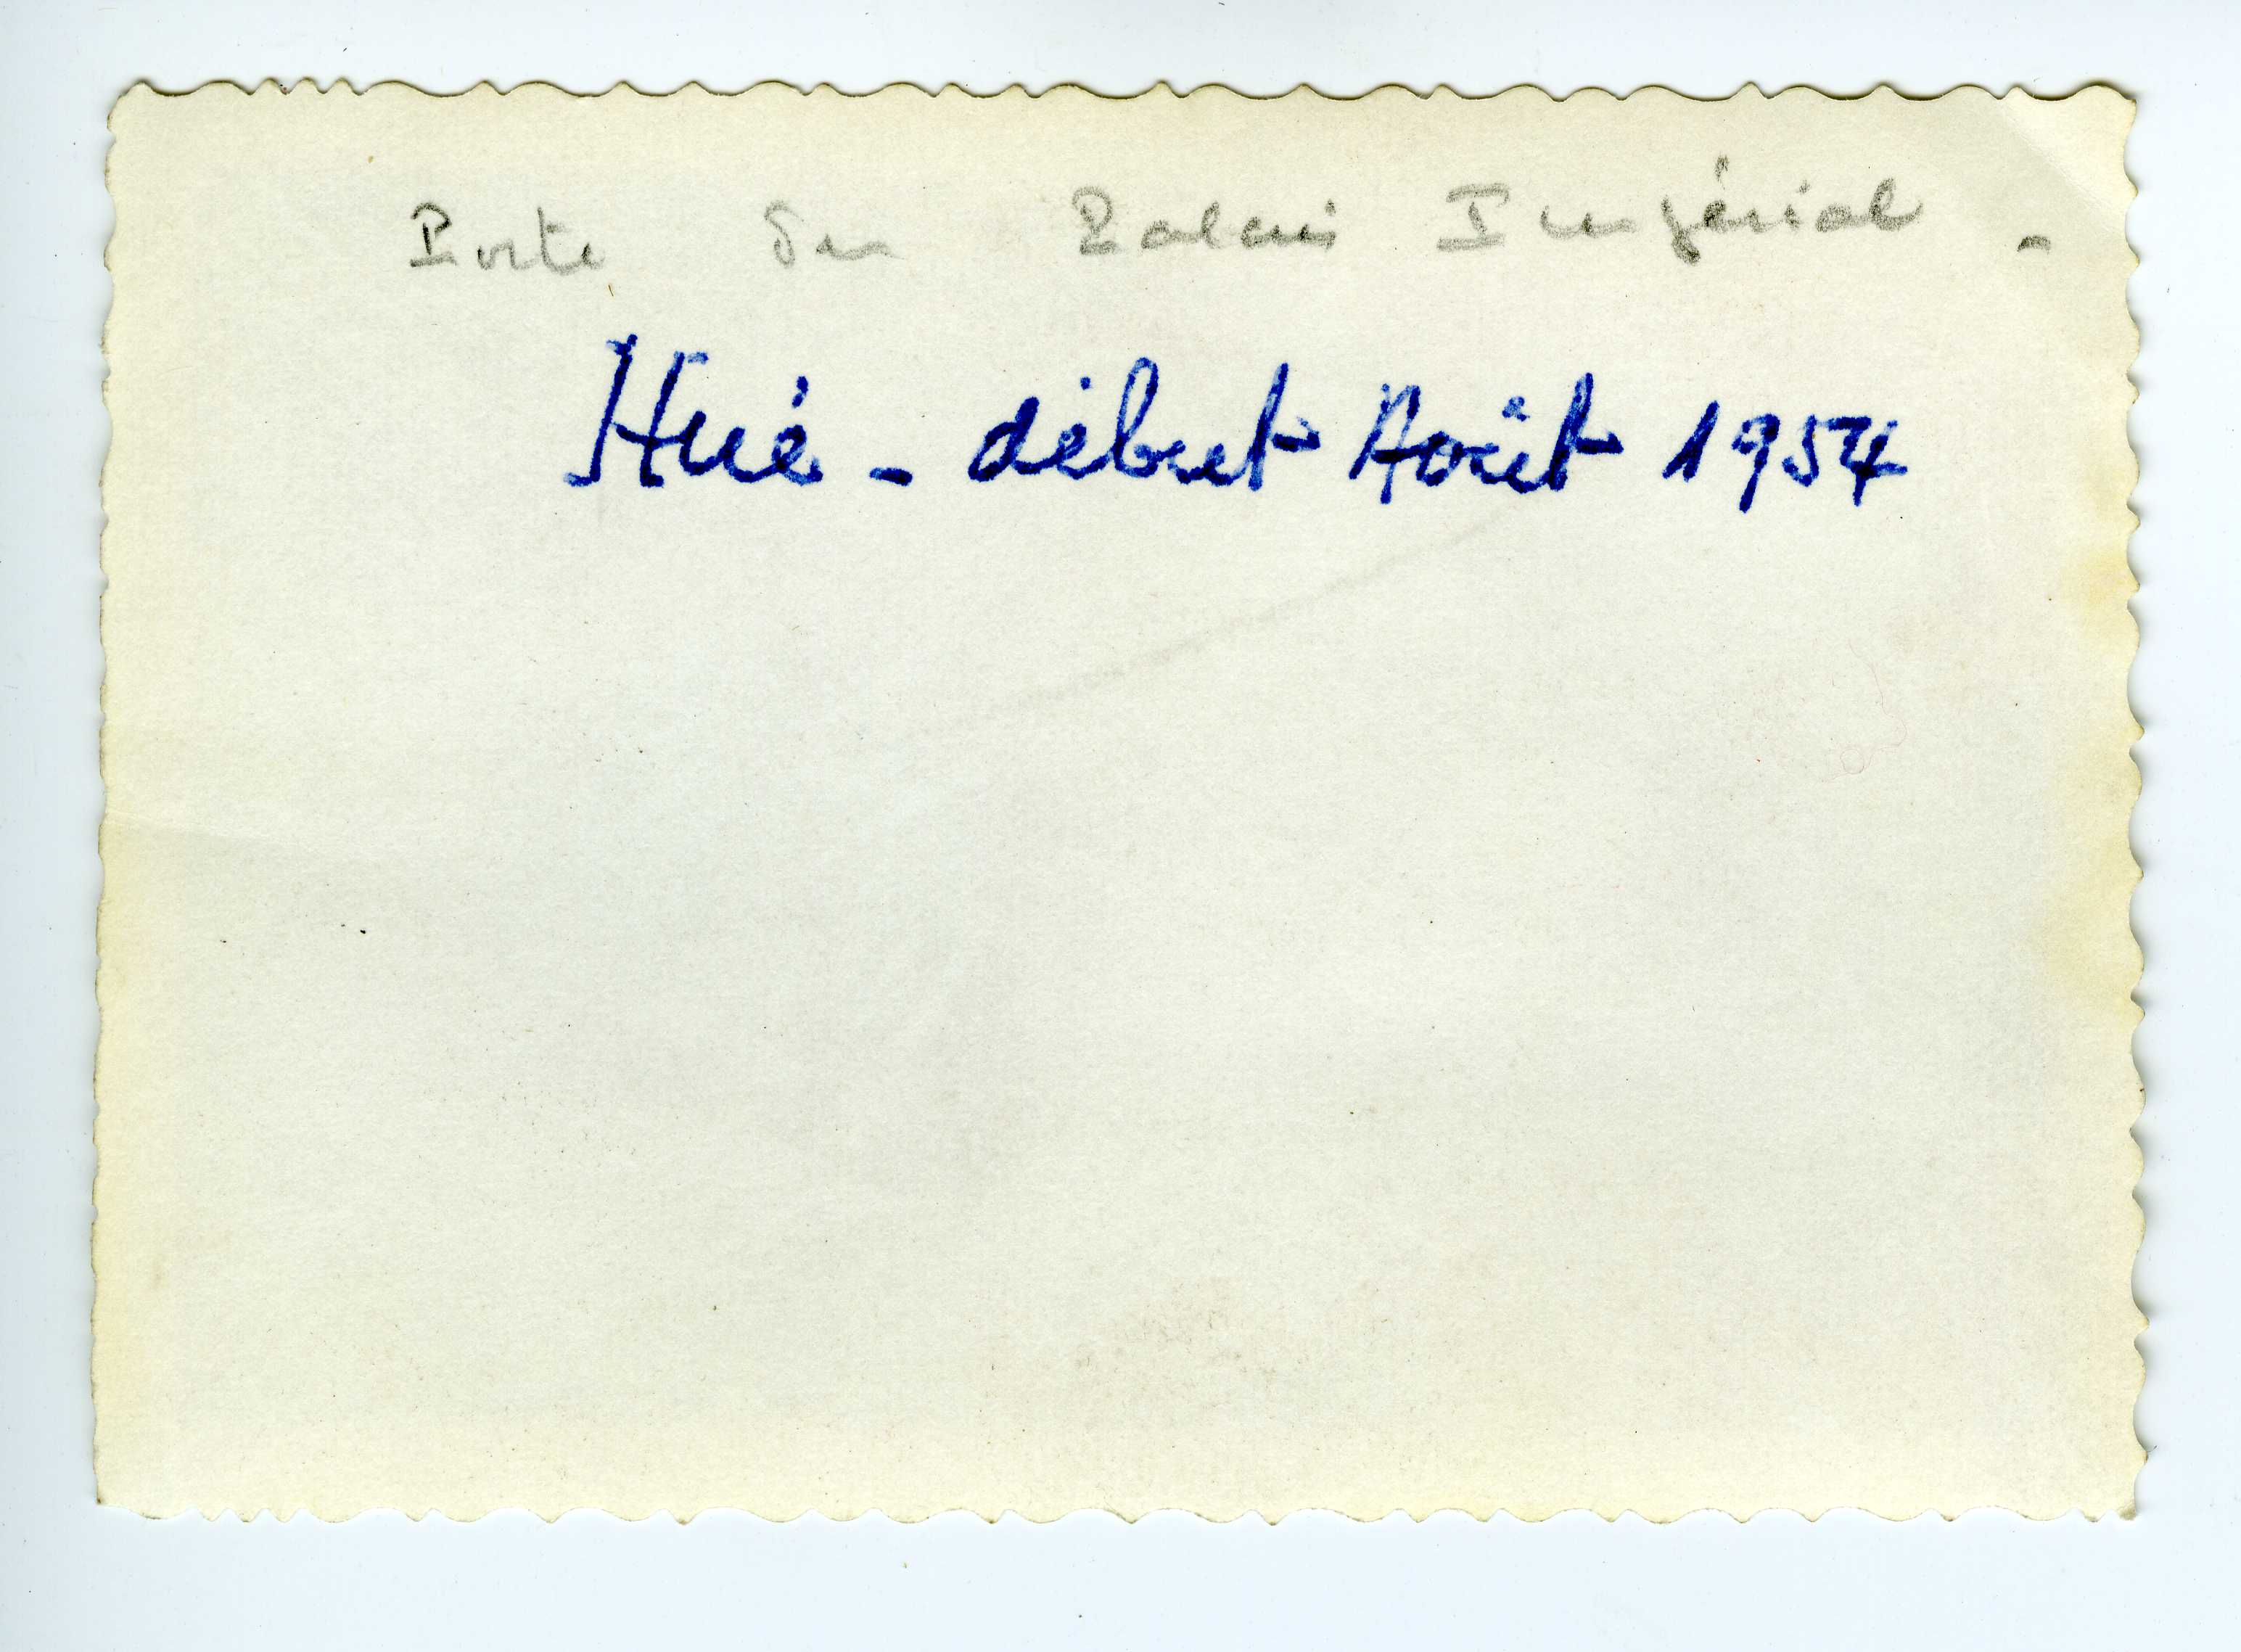 Porte du Palais Impérial -
Hué - début Août 1954